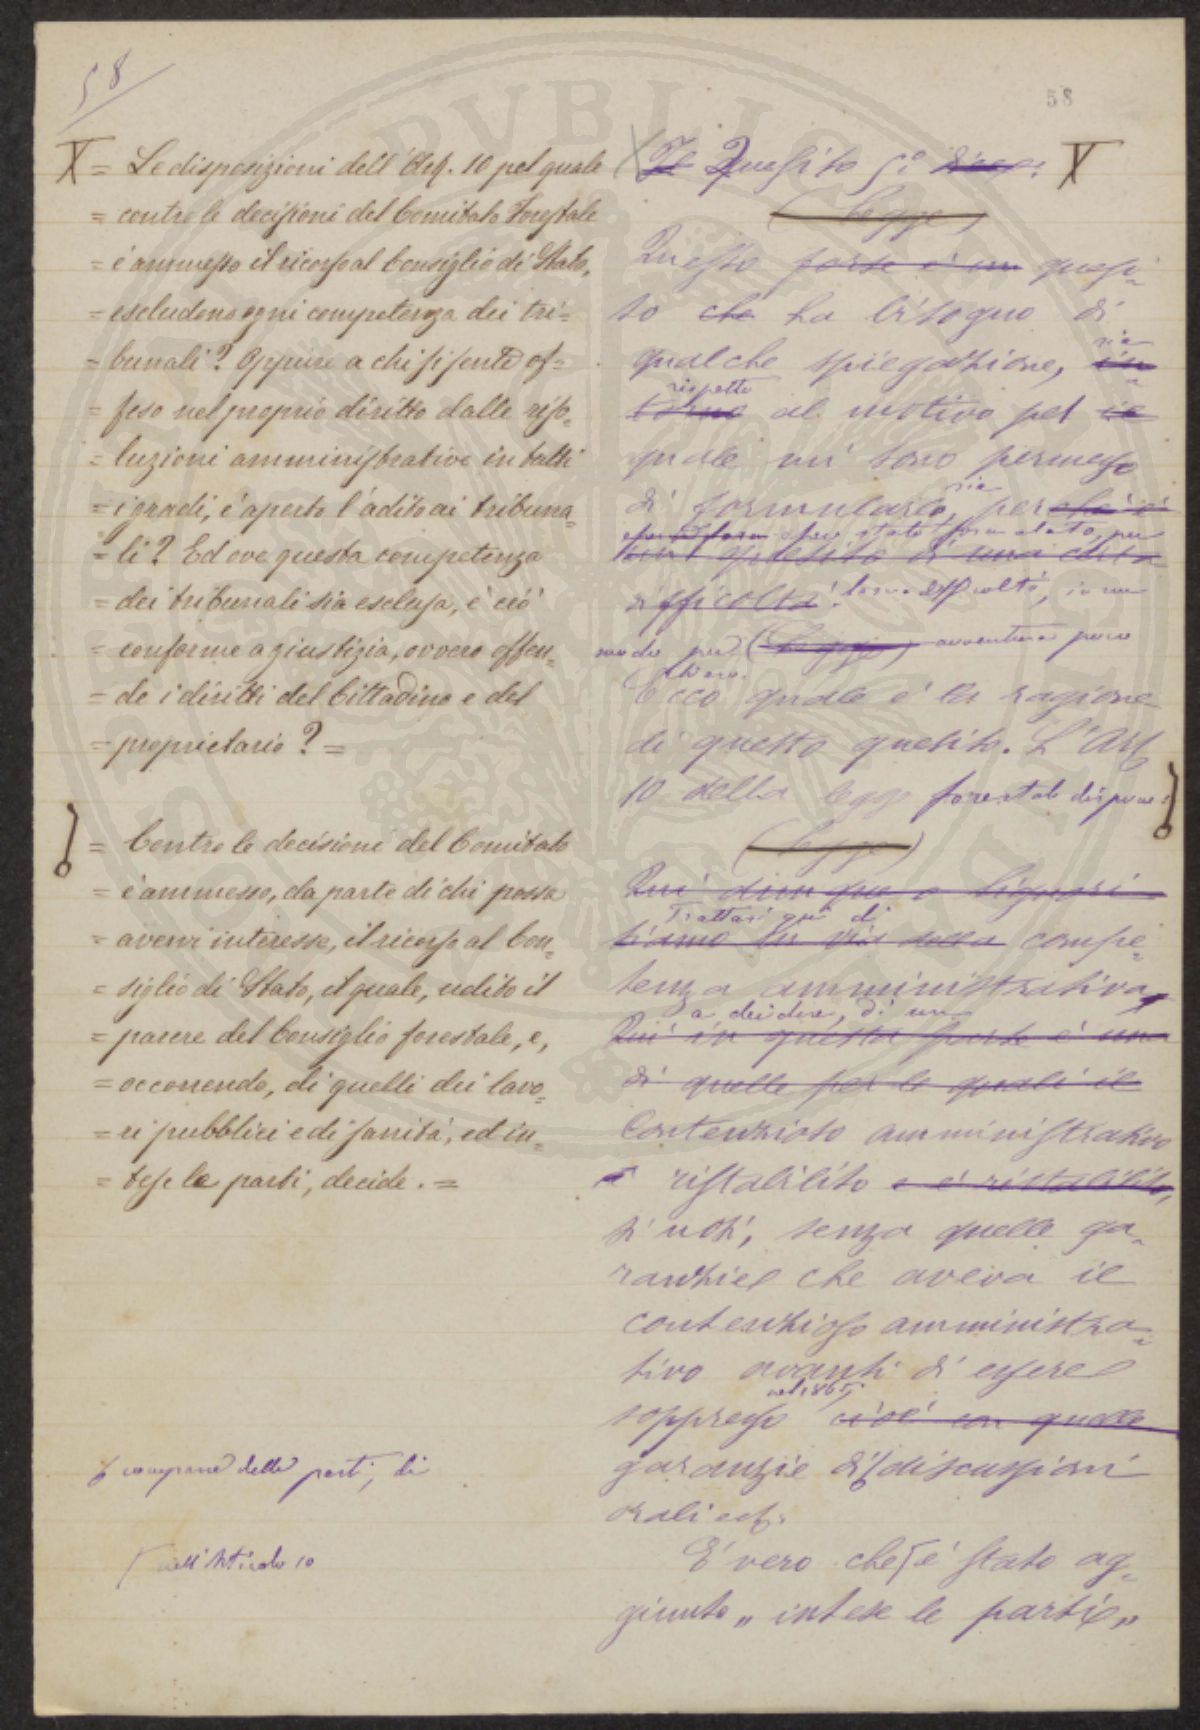 58
58
= Le disposizioni dell'Art. 10 pel quale
= contro le decisioni del Comitato Forestale
= è ammesso il ricorso al Consiglio di Stato,
= escludono ogni competenza dei tri=
= bunali? Oppure a chi si sente of=
= feso nel proprio diritto dalle riso=
= luzioni amministrative in tutti
= i gradi, è aperto l'adito ai tribuna=
= li? Ed ove questa competenza
= dei tribunali sia esclusa, è ciò
= conforme a giustizia, ovvero offen=
= de i diritti del Cittadino e del
= proprietario? =
= Contro le decisioni del Comitato
= è ammesso, da parte di chi possa
= avervi interesse, il ricorso al Con=
= siglio di Stato, il quale, udito il
= parere del Consiglio forestale, e,
= occorrendo, di quelli dei lavo=
= ri pubblici e di sanità, ed in=
= tese le parti, decide. =
comparse delle parti, di
nell'Articolo 10
Il Quesito 5°
(Legge)
Questo forse è un quesi=
to che ha bisogno di
sia
qualche spiegazione, in
rispetto
torno al motivo pel
quale mi sono permesso
sia
di formularlo, perchè è
stato formulato, per
un quesito di una certa
difficoltà. difficoltà, in
modo per (Legge) avventura poco
chiaro.
Ecco quale è la ragione
di questo quesito. L'Art
10 della legge forestale dispone:
(Legge)
Qui dunque o Signori
Trattasi qui di
siamo in via della compe=
tenza amministrativa,
a decidere, di un
Qui in questa parte è una
di quelle per le quali il
Contenzioso amministrativo
è ristabilito e è ristabilito,
si noti, senza quelle ga=
ranzie che aveva il
contenzioso amministra=
tivo avanti di essere
nel 1865,
soppresso cioè con quelle
garanzie di discussioni
orali ecc.
È vero che è stato ag=
giunto „ intese le parti „